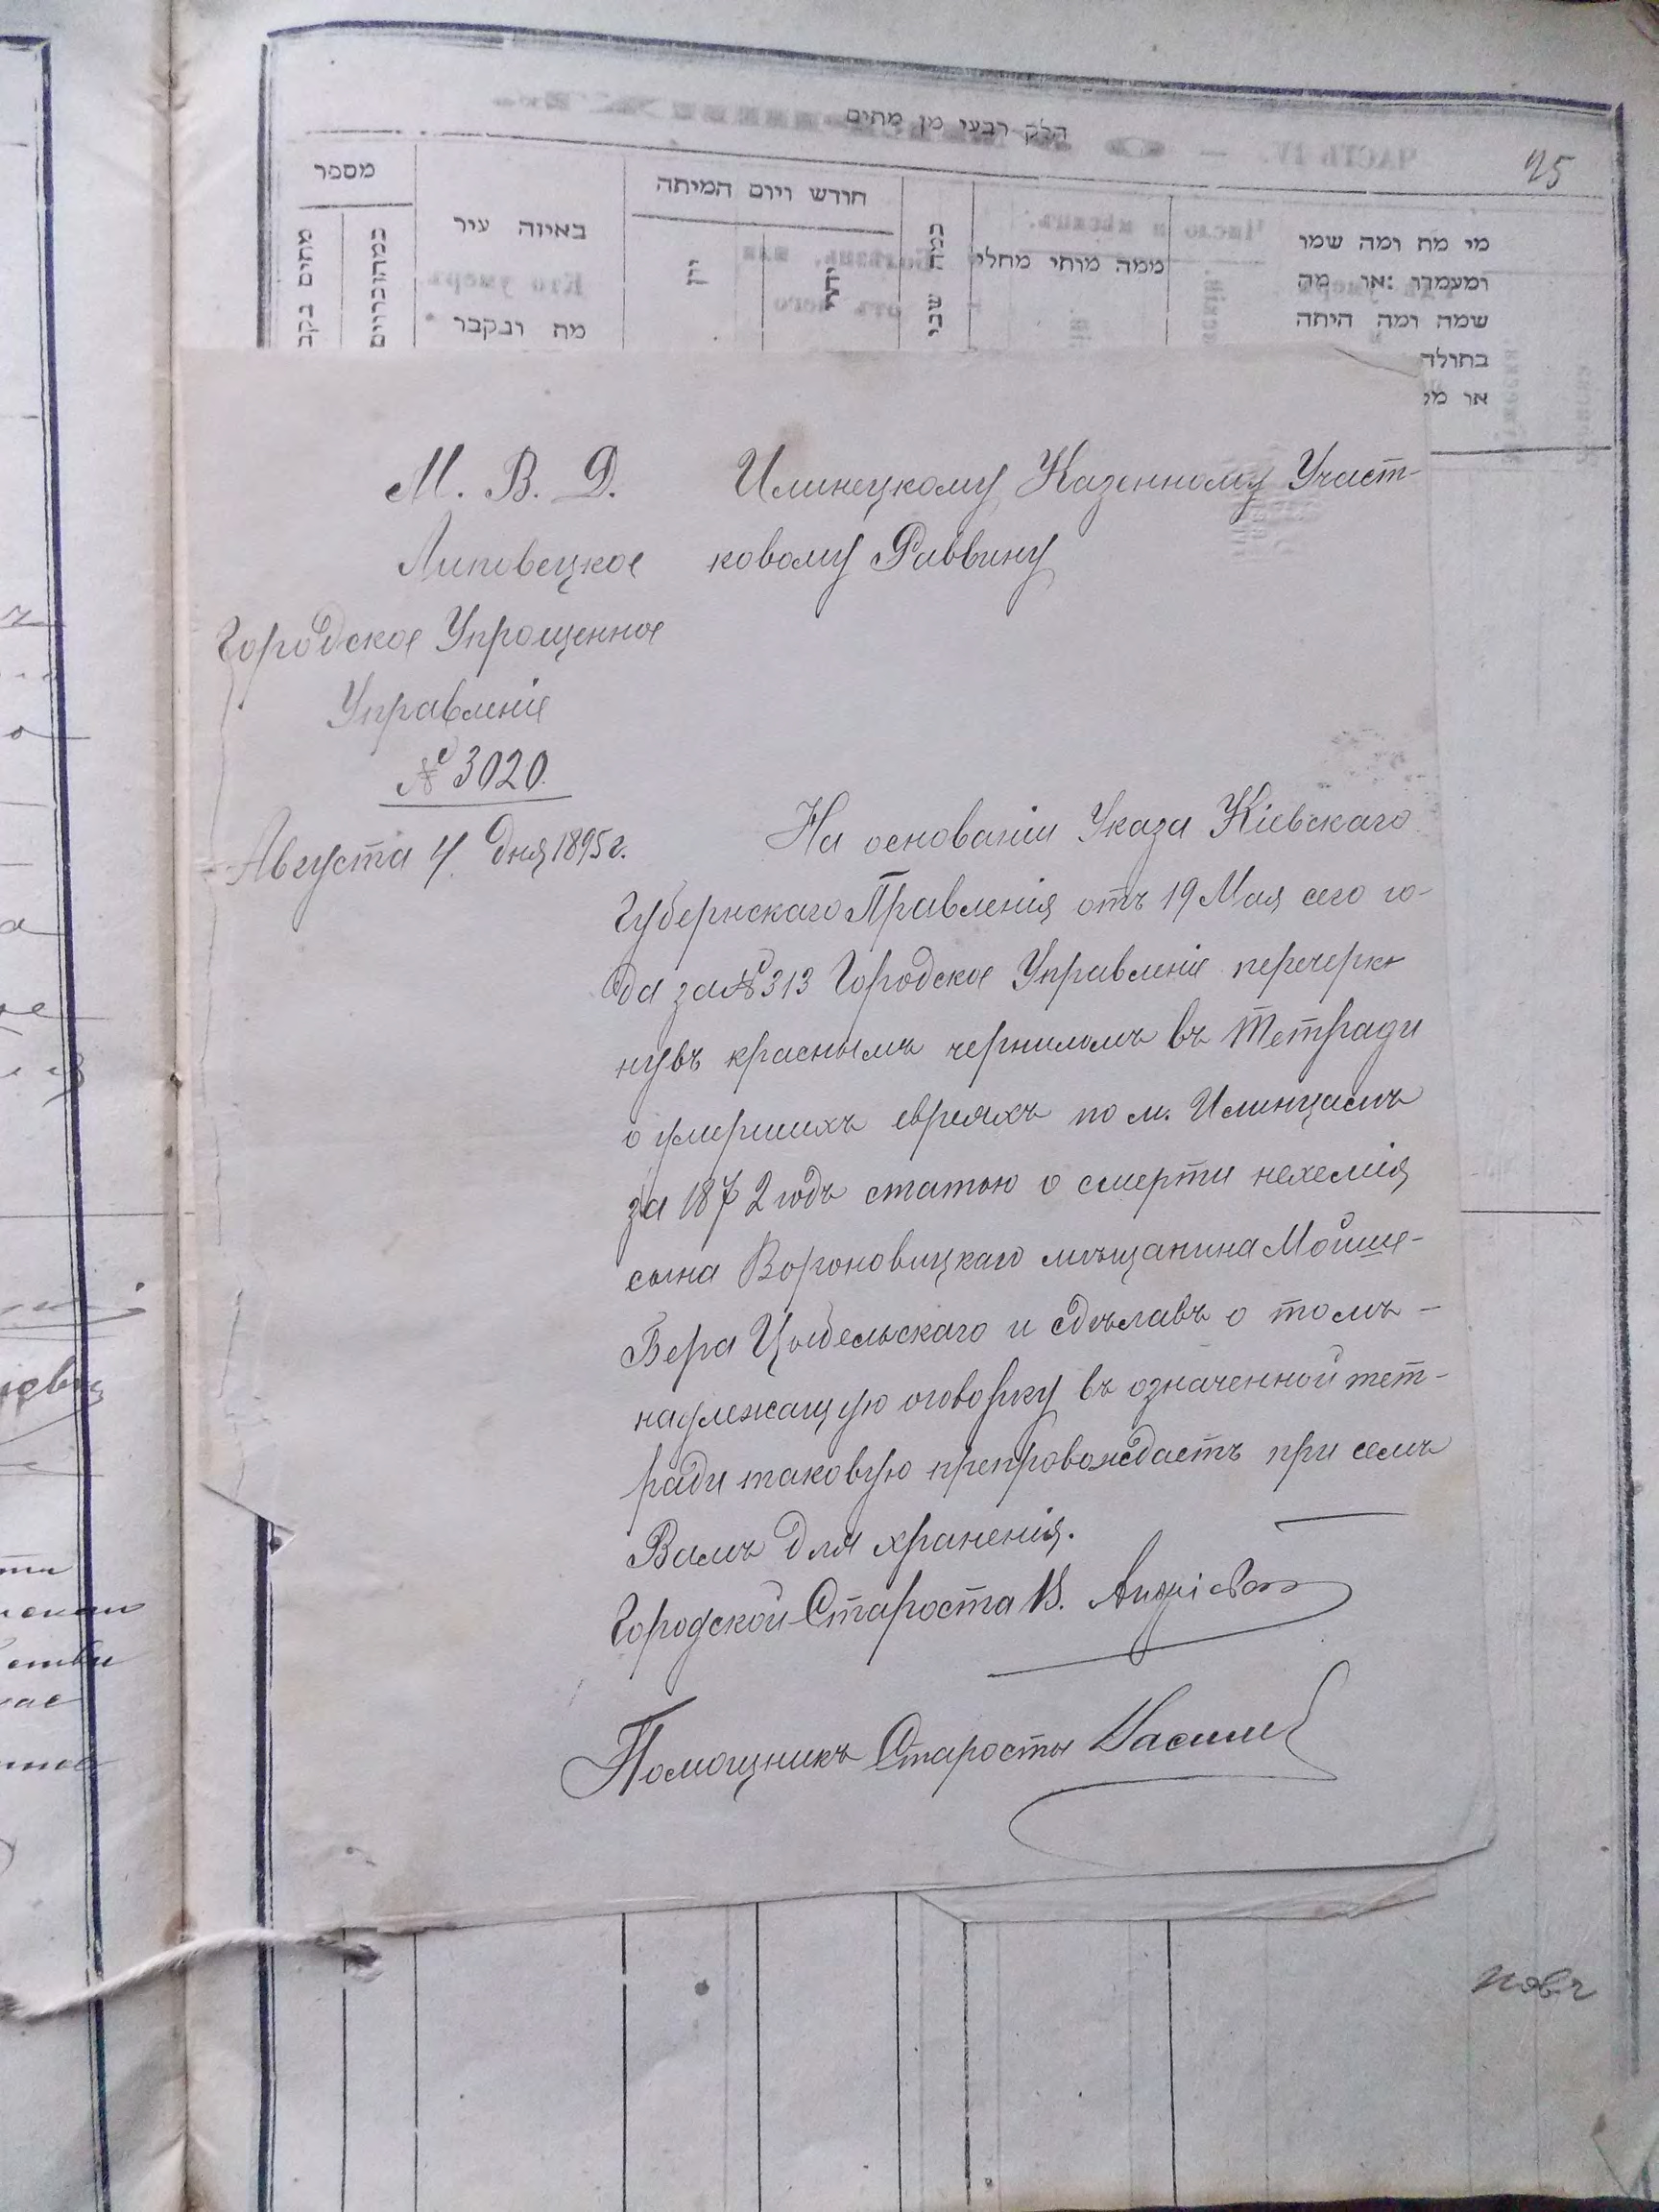 חלק רבעי מן מתים
25
מספר
חודש ויום המיתה
מתים בקב
במהזכרים
באיזה עיר
מת ונקבר
כמה שני
ממה מותי מחלי
מי מת ומה שמו
ומעמדו או מה
שמה ומה היתה
בתולה
או
М. В. Д.
Липовецкое
Городское Упрощенное
Управленіе
№ 3020.
Августа 4 дня 1895 г.
Илинецкому Казенному Участ-
ковому Раввину
На основаніи Указа Кіевскаго
Губернскаго Правленія отъ 19 Мая сего го-
да за № 313 Городское Управленіе перечерк-
нувъ краснымъ черниломъ въ тетради
о умершихъ евреяхъ по м. Илинцамъ
за 1872 годъ статью о смерти нехемія
сына Вороновицкаго мѣщанина Мойше-
Бера Цыбельскаго и сдѣлавъ о томъ -
надлежащую оговорку въ означенной тет-
ради таковую препровождаетъ при семъ
Вамъ для храненія.
Городской Староста В.
Помощникъ Старосты